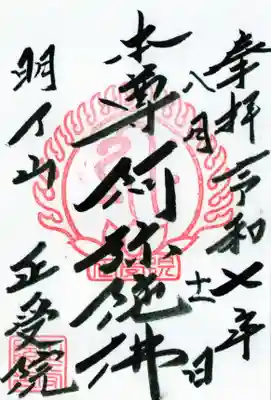 奉拝 令和七年
八月十一日
本尊阿弥陀佛
明了山 正受院